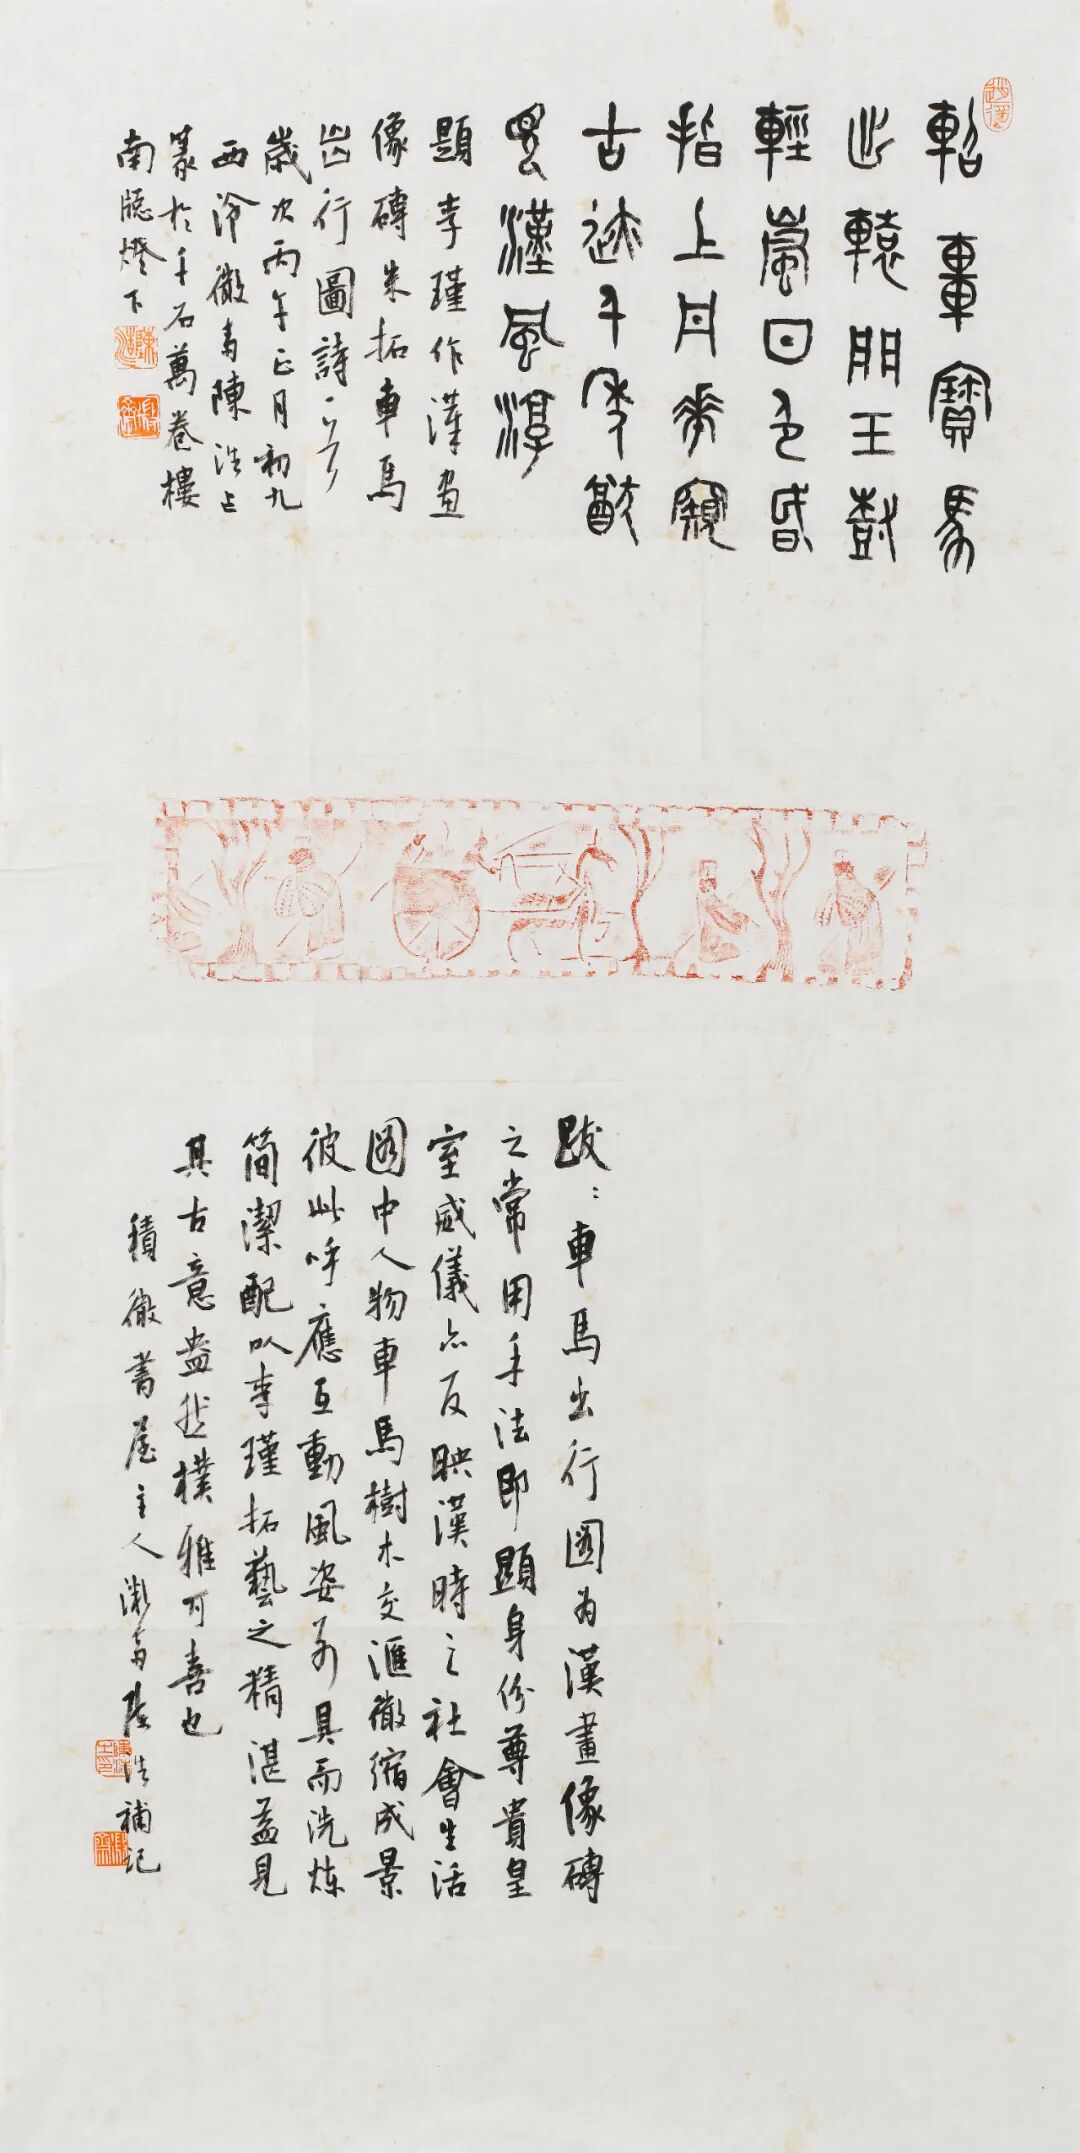 軺車寶馬
出轅門玉樹
輕嵐日色昏
指上丹華窺
古迹千年猶
見漢風淳
題李瑾作漢畫
像磚朱拓車馬
出行圖詩一首
歲次丙午正月初九
西泠 陳浩
篆於千石萬卷樓
南牕燈下
跋：車馬出行圖為漢畫像磚
之常用手法即顯身份尊貴皇
室威儀亦反映漢時之社會生活
圖中人物車馬樹木交滙微縮成景
彼此呼應互動風姿 具而洗炼
简潔配以李瑾拓藝之精湛益見
其古意盎然樸雅可喜也
積微書屋主人 陳浩補記